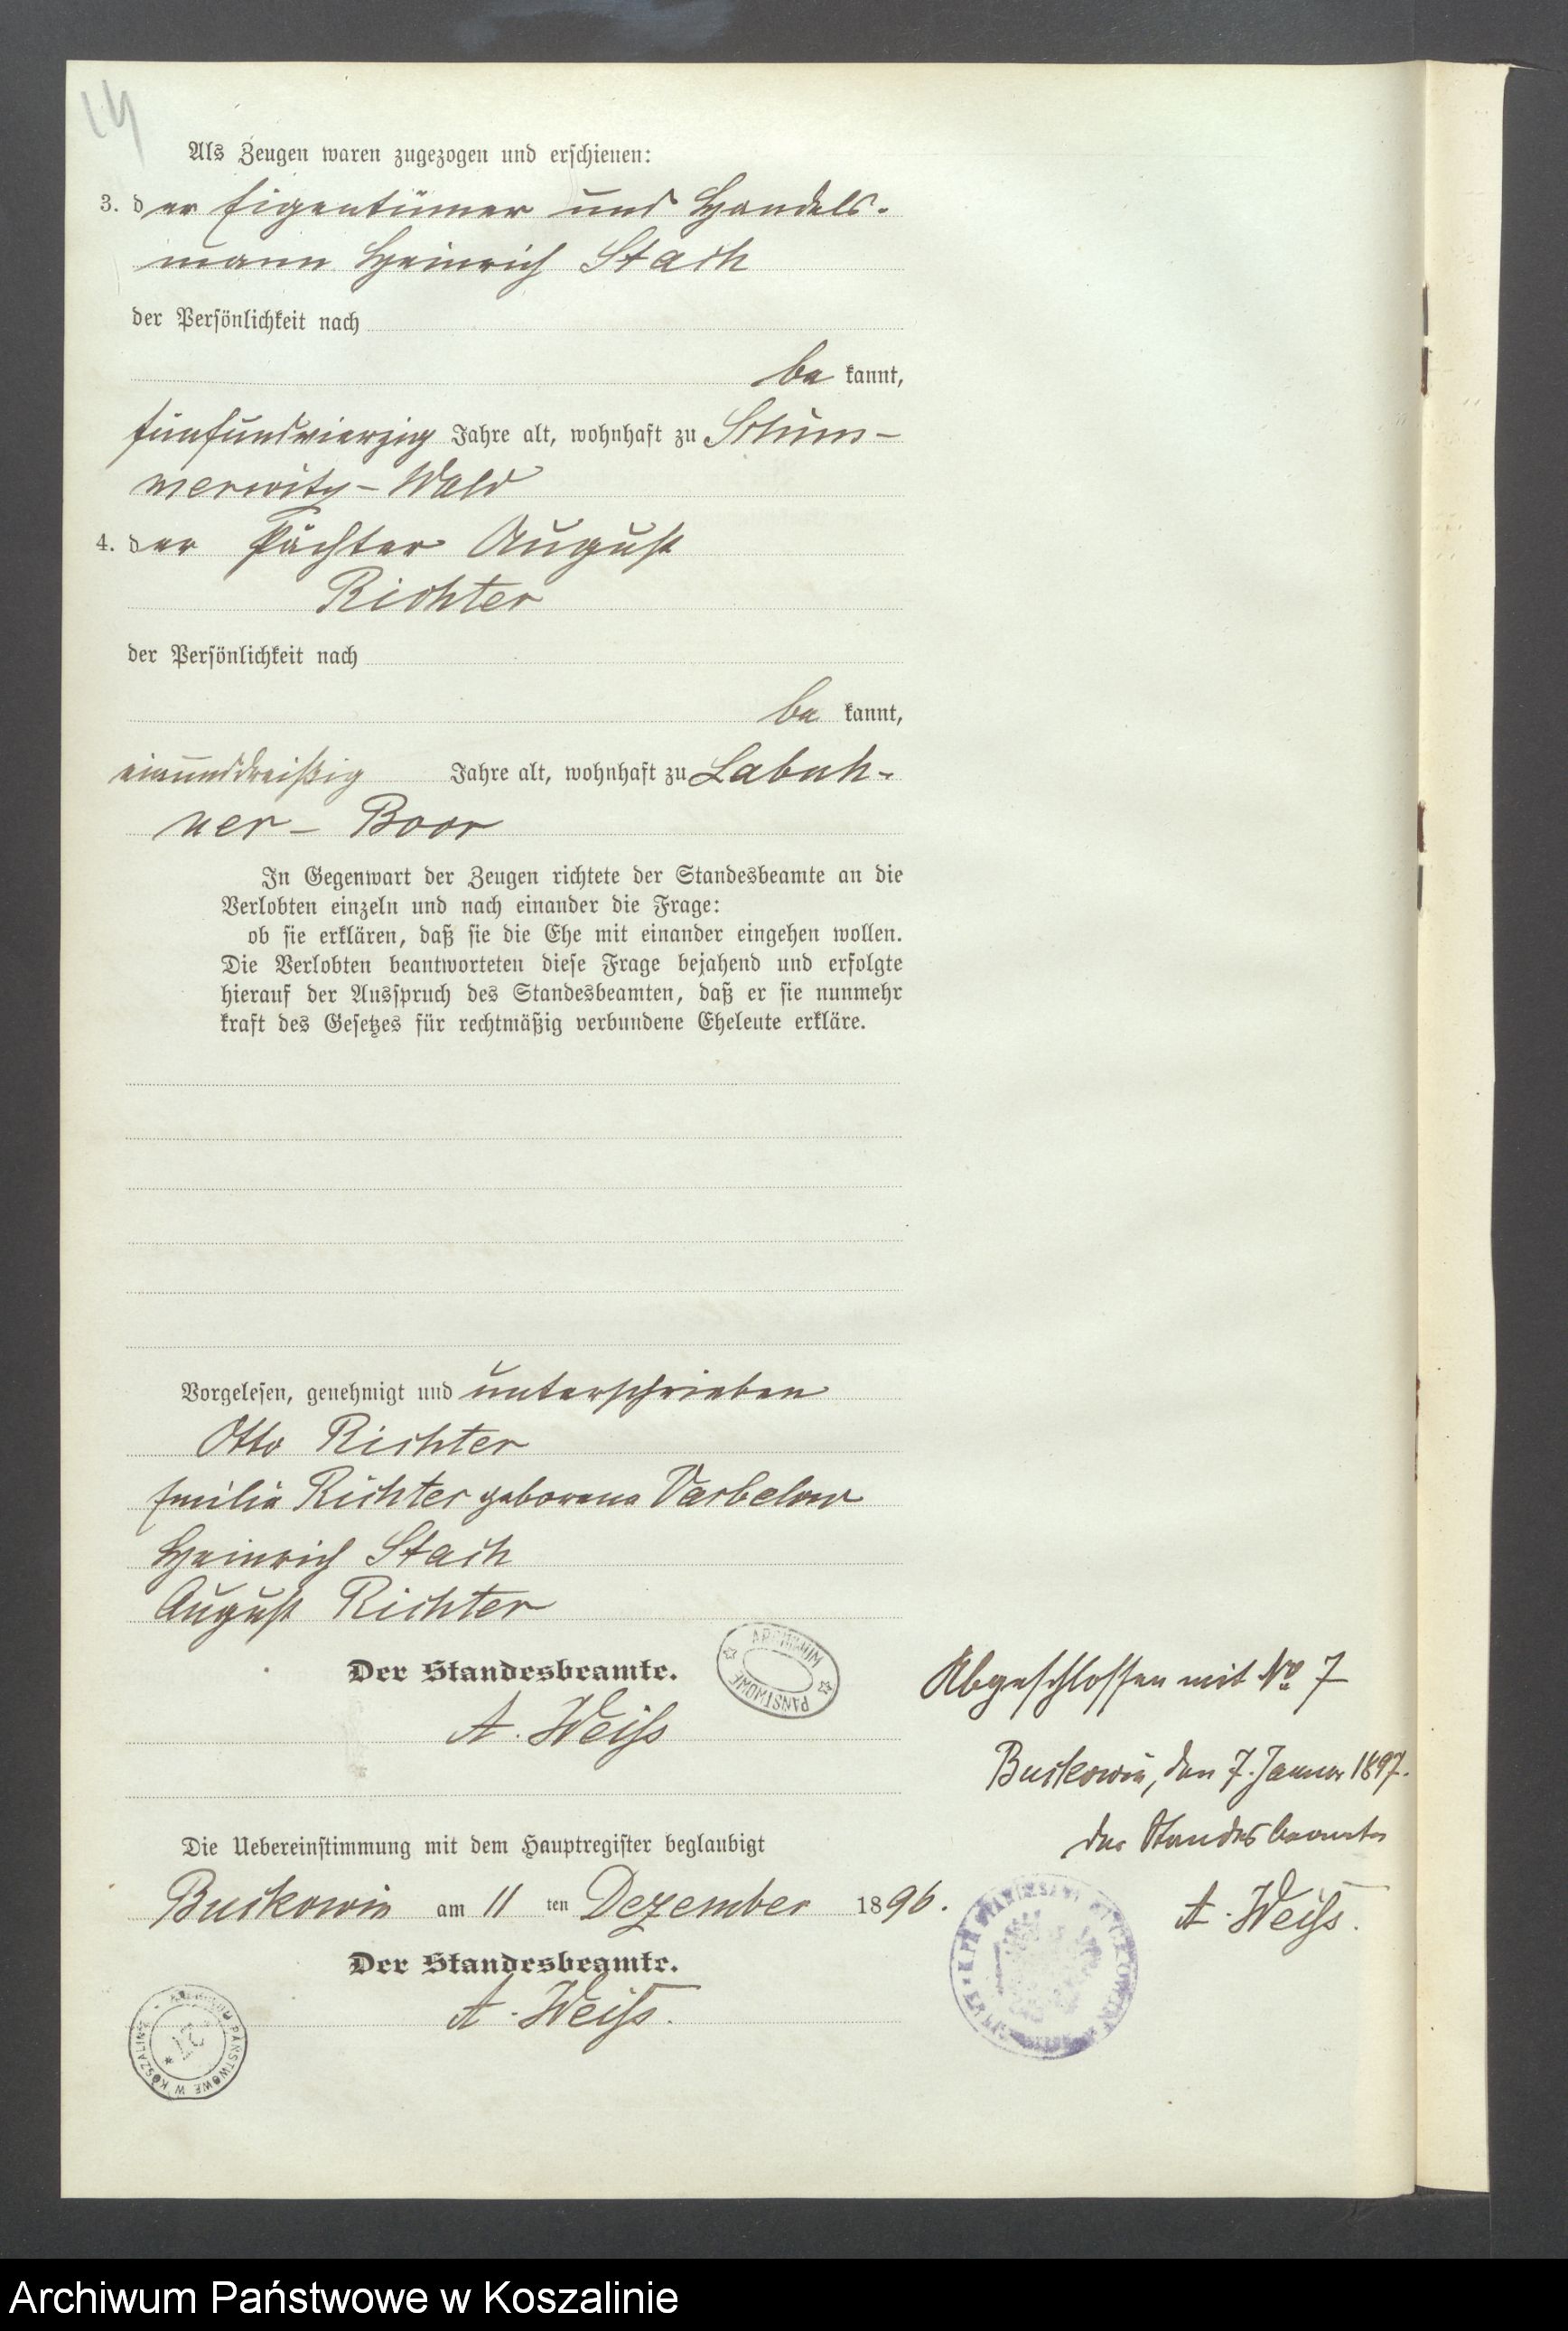 14
Als Zeugen waren zugezogen und erschienen:
3. der Eigentümer und Handels-
mann Heinrich Stach
der Persönlichkeit nach
be kannt,
fünfundvierzig Jahre alt, wohnhaft zu Schim-
merwitz-Wald
4. der Pächter August
Richter
der Persönlichkeit nach
be kannt,
einunddreißig Jahre alt, wohnhaft zu Labuh-
ner-Boor
In Gegenwart der Zeugen richtete der Standesbeamte an die
Verlobten einzeln und nach einander die Frage:
ob sie erklären, daß sie die Ehe mit einander eingehen wollen.
Die Verlobten beantworteten diese Frage bejahend und erfolgte
hierauf der Ausspruch des Standesbeamten, daß er sie nunmehr
kraft des Gesetzes für rechtmäßig verbundene Eheleute erkläre.
Vorgelesen, genehmigt und unterschrieben
Otto Richter
Emilie Richter geborene Varbelow
Heinrich Stach
August Richter
Der Standesbeamte.
A. Weiß
ARCHIWUM PAŃSTWOWE
Abgeschlossen mit No 7
Buckowin, den 7. Januar 1897.
der Standesbeamte
A. Weiß.
Die Uebereinstimmung mit dem Hauptregister beglaubigt
Buckowin am 11 ten Dezember 1896.
Der Standesbeamte.
A. Weiß.
ARCHIWUM PAŃSTWOWE W KOSZALINIE
Archiwum Państwowe w Koszalinie